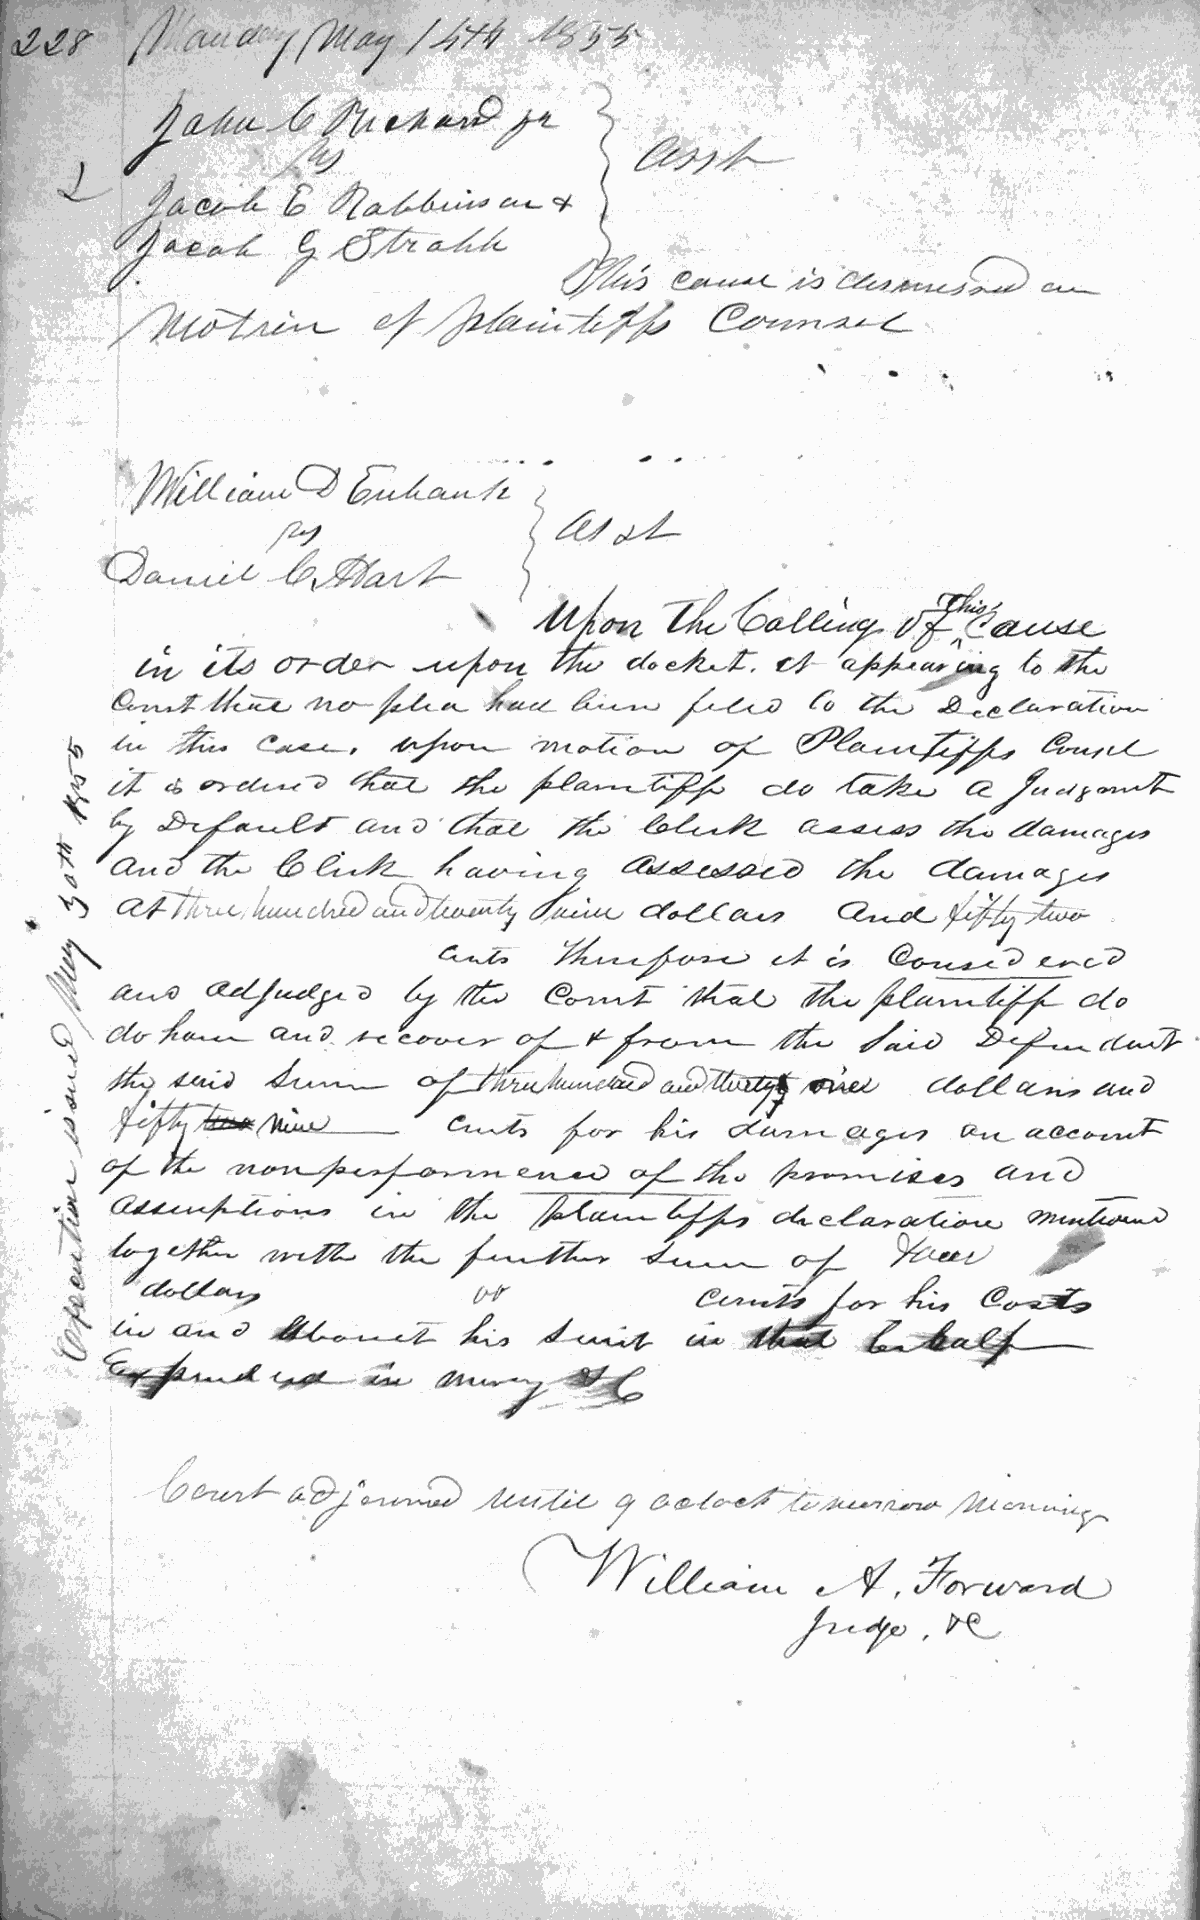 228 Monday May 14th 1855
John C Richard jr
vs
Asst
2
Jacob E Robbinson &
Jacob G Strahh
This cause is dismissed on
Motion of plaintiffs Counsel
William D Eubank
vs
Asst
Daniel C Hart
Upon the Calling of this Cause
in its order upon the docket. it appearing to the
Court that no plea had been filed to the Declaration
in this case. upon motion of Plaintiffs Counsel
it is ordered that the plaintiff do take a Judgment
by Default and that the Clerk assess the damages
and the Clerk having assessed the damages
at three hundred and twenty nine dollars and fifty two
cents Therefore it is Considered
and adjudged by the Court that the plaintiff do
do have and recover of & from the said Defendant
the said sum of three hundred and dollars and
fifty two nine cents for his damages on account
of the nonperformence of the promises and
assumptions in the plaintiffs declaration mentioned
together with the further sum of four
dollars 00 cents for his Costs
in and about his suit in that behalf
Expended in mercy &C
Execution issued May 30th 1855
Court adjourned until 9 oclock tomorrow morning
William A. Forward
Judge. &C